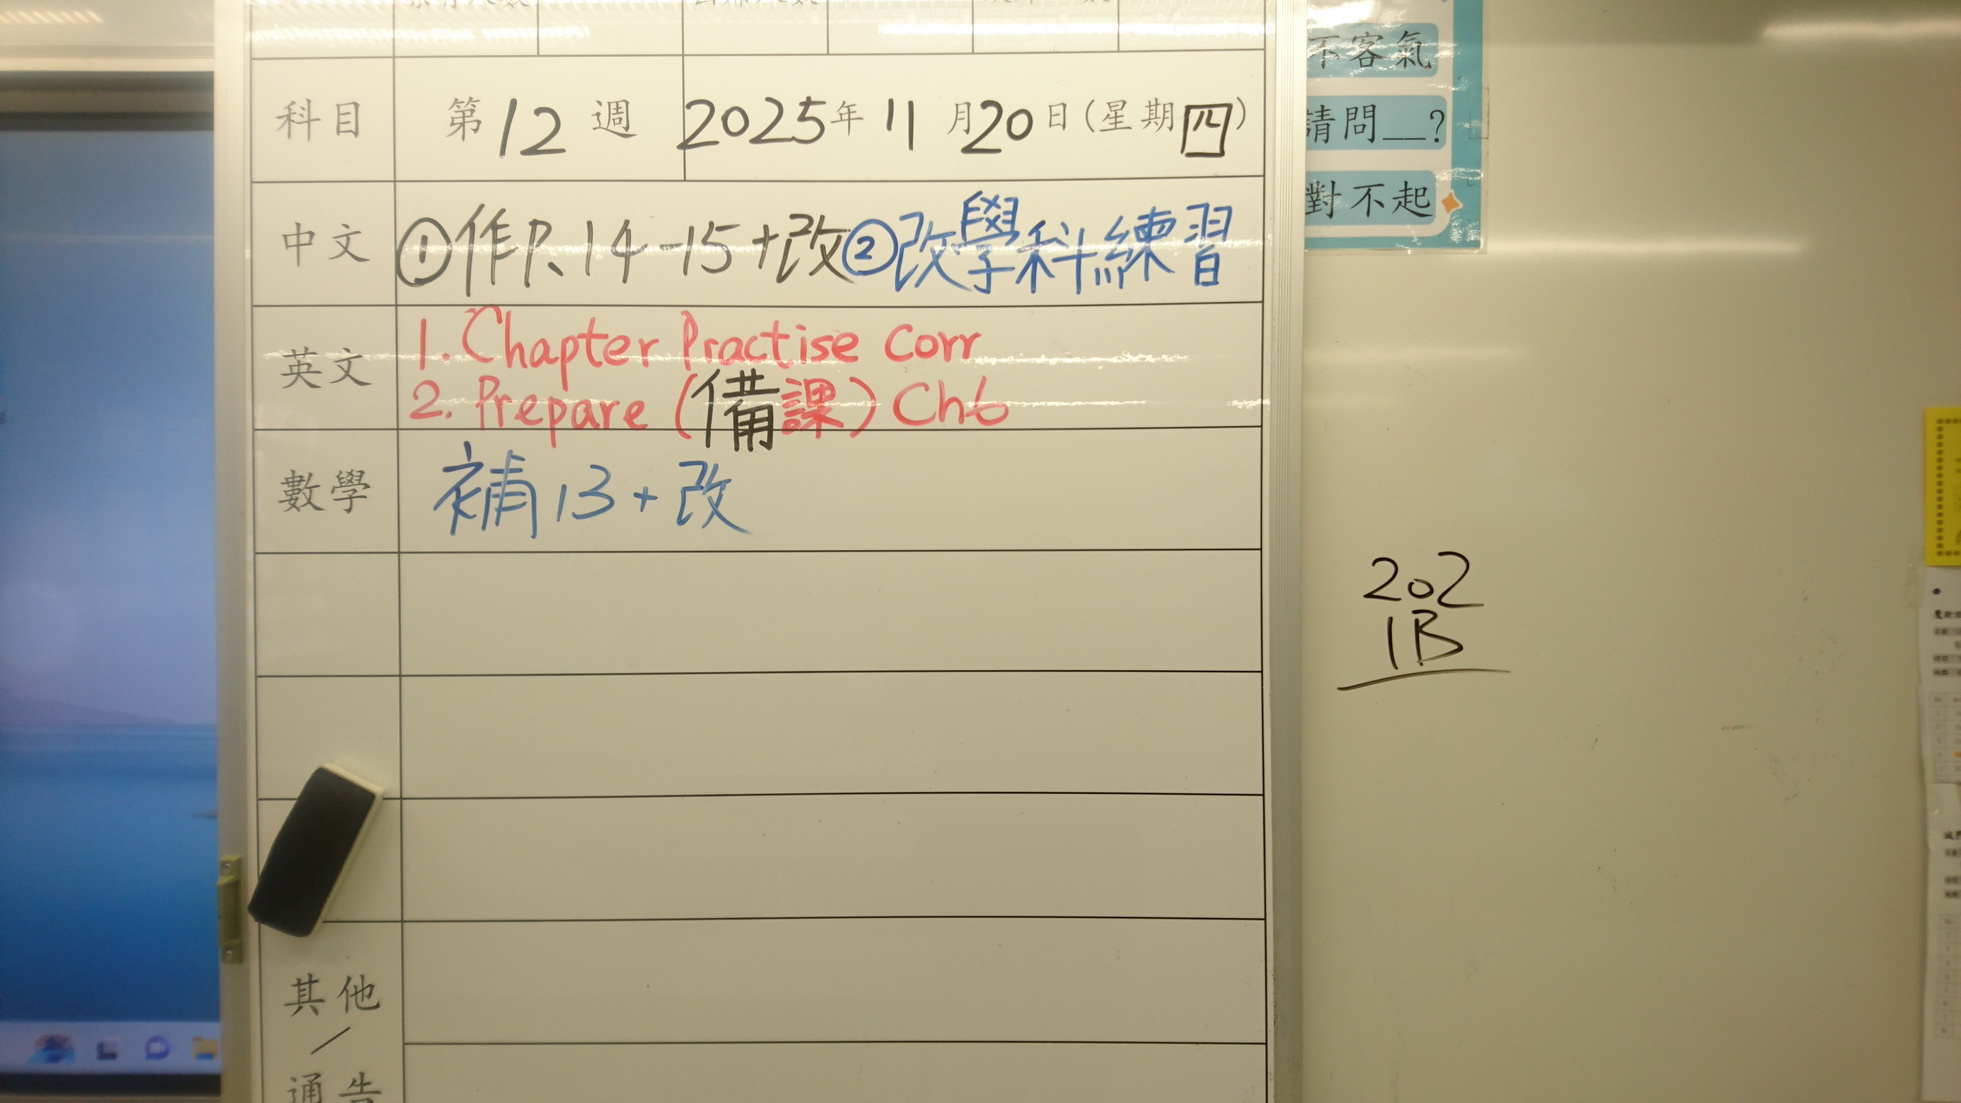 科目 第12週 2025年11月20日(星期四)
中文 ①作P.14-15+改②改學科練習
英文 1. Chapter Practise Corr
2. Prepare (備課) Ch6
數學 補13+改
其他
/
通告
不客氣
請問__?
對不起
202
1B